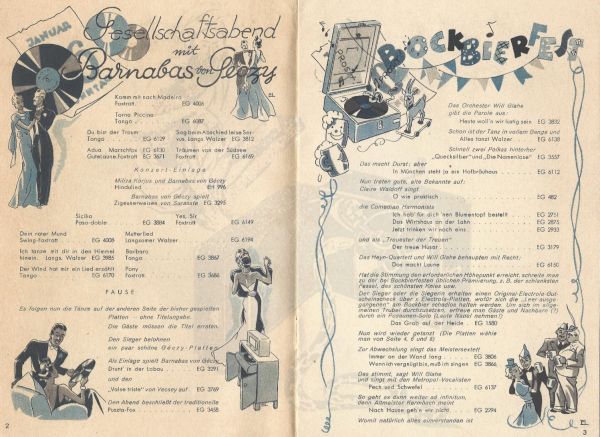 JANUAR
Gesellschaftsabend
mit
Barnabas von Géczy
EL
Komm mit nach Madeira
Foxtrott. EG 4006
Torna Piccina
Tango. EG 4087
Du bist der Traum
Tango EG 6129
Sag beim Abschied leise Servus, Langs. Walzer EG 3812
Adua Marschfox EG 6130
Gutelaune, Foxtrott EG 3671
Träumen von der Südsee
Foxtrott EG 6169
Konzert-Einlage
Milita Korjus und Barnabas von Géczy
Hindulied EH 996
Barnabas von Géczy spielt
Zigeunerweisen von Sarasate EG 3295
Sicilia
Paso-doble EG 3884
Yes, Sir
Foxtrott EG 6149
Dein roter Mund
Swing-Foxtrott EG 4008
Mutterlied
Langsamer Walzer EG 6194
Ich tanze mit dir in den Himmel
hinein. Langs. Walzer EG 3985
Barbara
Tango EG 3867
Der Wind hat mir ein Lied erzählt
Tango EG 6170
Pony
Foxtrott EG 3686
PAUSE
Es folgen nun die Tänze auf der anderen Seite der bisher gespielten
Platten – ohne Titelangabe.
Die Gäste müssen die Titel erraten.
Den Siegern belohnen
ein paar schöne Géczy-Platten
Als Einlage spielt Barnabas von Géczy
Drunt' in der Lobau EG 3391
und den
„Valse triste" von Vecsey auf EG 3769
Den Abend beschließt der traditionelle
Poszta-Fox EG 3458
2
PROST
BOCKBIERFEST
Das Orchester Will Glahe
gibt die Parole aus:
Heute woll'n wir lustig sein EG 3832
Schon ist der Tanz in vollem Gange und
Alles tanzt Walzer EG 6138
Schnell zwei Polkas hinterher
„Quecksilber" und „Die Namenlose" EG 3557
Das macht Durst; aber
In München steht ja ein Hofbräuhaus EG 6112
Nun treten gute, alte Bekannte auf:
Claire Waldoff singt
O wie praktisch EG 482
die Comedian Harmonists
Ich hab' für dich 'nen Blumentopf bestellt EG 2751
Das Wirtshaus an der Lahn EG 2875
Jetzt trinken wir noch eins EG 2933
und als „Treuester der Treuen"
Der treue Husar EG 3179
Das Heyn-Quartett und Will Glahe behaupten mit Recht:
Das macht Laune EG 6150
Hat die Stimmung den erforderlichen Höhepunkt erreicht, schreite man
zu der bei Bockbierfesten üblichen Prämiierung, z. B. der schlanksten
Fessel, des schönsten Knies usw.
Der Sieger oder die Siegerin erhalten einen Original-Electrola-Gutscheinscheck
über x Electrola-Platten, wofür sich die „Leer ausgegangenen"
am Bockbier schadlos halten werden. Um sich im allgemeinen
Trubel durchzusetzen, erfreue man Gäste und Nachbarn (?)
durch ein Posaunen-Solo (Laute Nadel nehmen!)
Das Grab auf der Heide EG 1580
Nun wird wieder getanzt (Die Platten wähle
man von Seite 4, 6 und 8)
Zur Abwechselung singt das Meistersextett
Immer an der Wand lang EG 3806
Wenn ich vergnügt bin, muß ich singen EG 3866
Das stimmt, sagt Will Glahe
und singt mit den Metropol-Vocalisten
Pech und Schwefel EG 6137
So geht es dann weiter ad infinitum,
denn Altmeister Kermbach meint
Nach Hause geh'n wir nicht EG 2794
Womit natürlich alles einverstanden ist
EL
3